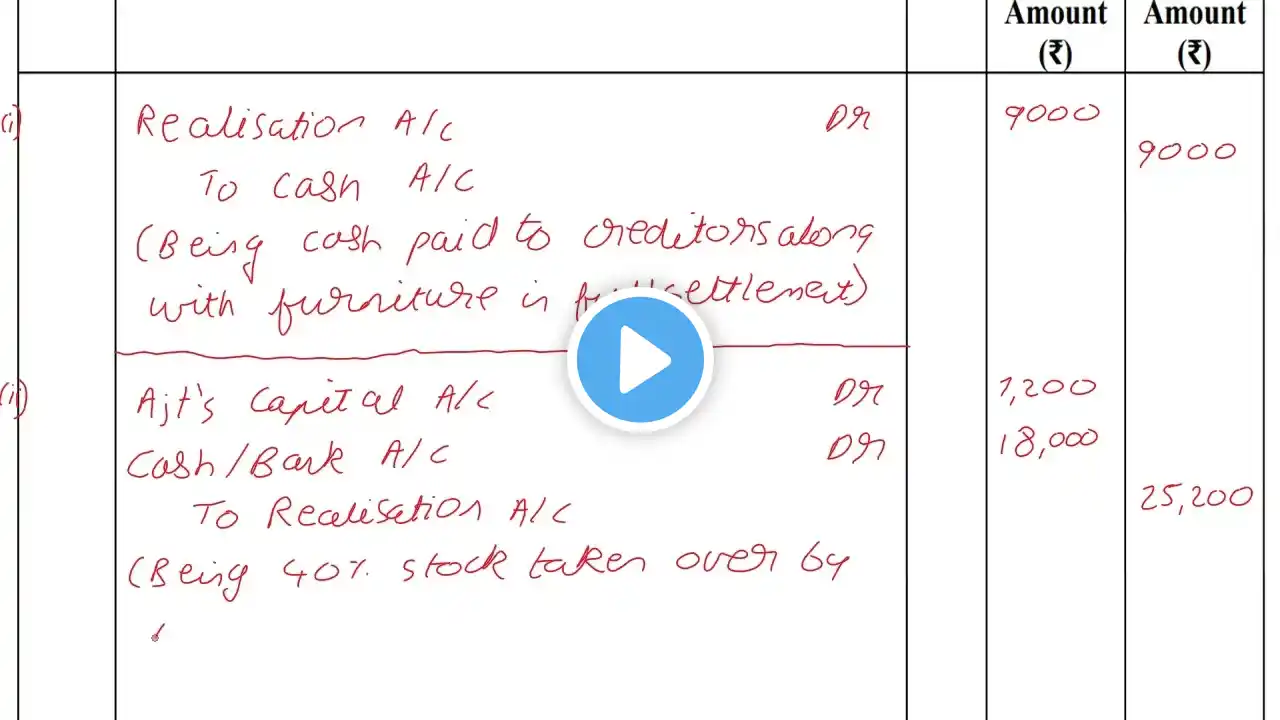 Amount Amount
(₹) (₹)
(i) Realisation A/c Dr 9000
9000
To Cash A/c
(Being cash paid to creditors along
with furniture in settlement)
(ii) Ajt's Capital A/c Dr 7,200
Cash/Bank A/c Dr 18,000
To Realisation A/c 25,200
(Being 40% stock taken over by